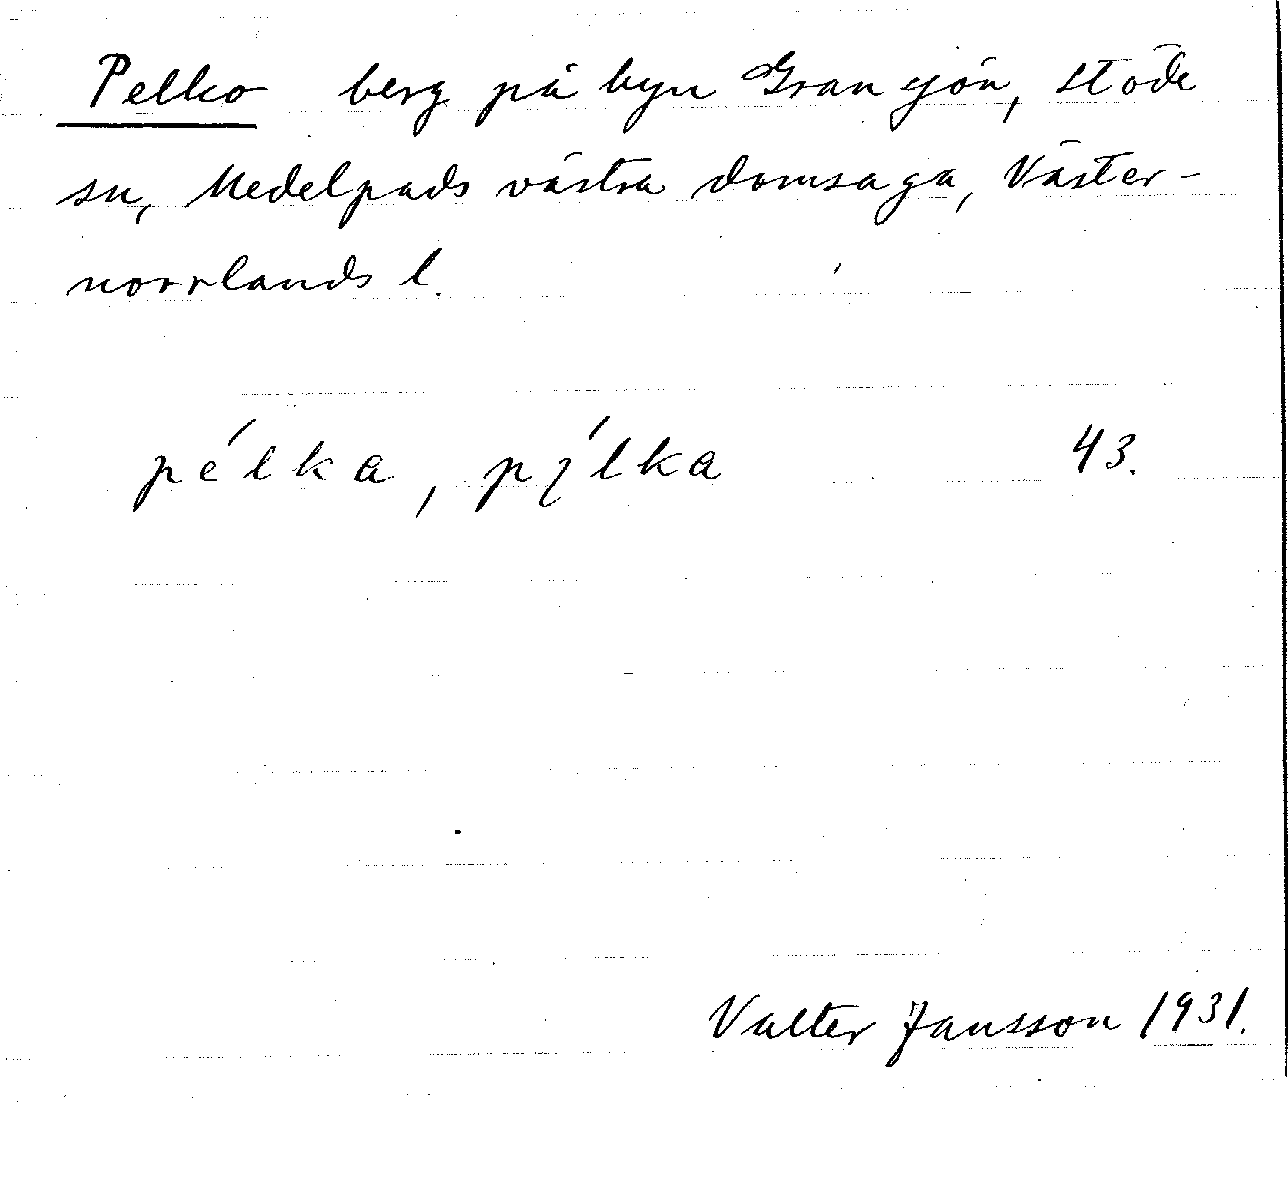 Pelko berg på byn Gransjön, Stöde
sn, Medelpads västra domsaga, Väster-
norrlands l.
pélka, pȷ́lka 43.
Valter Jansson 1931.